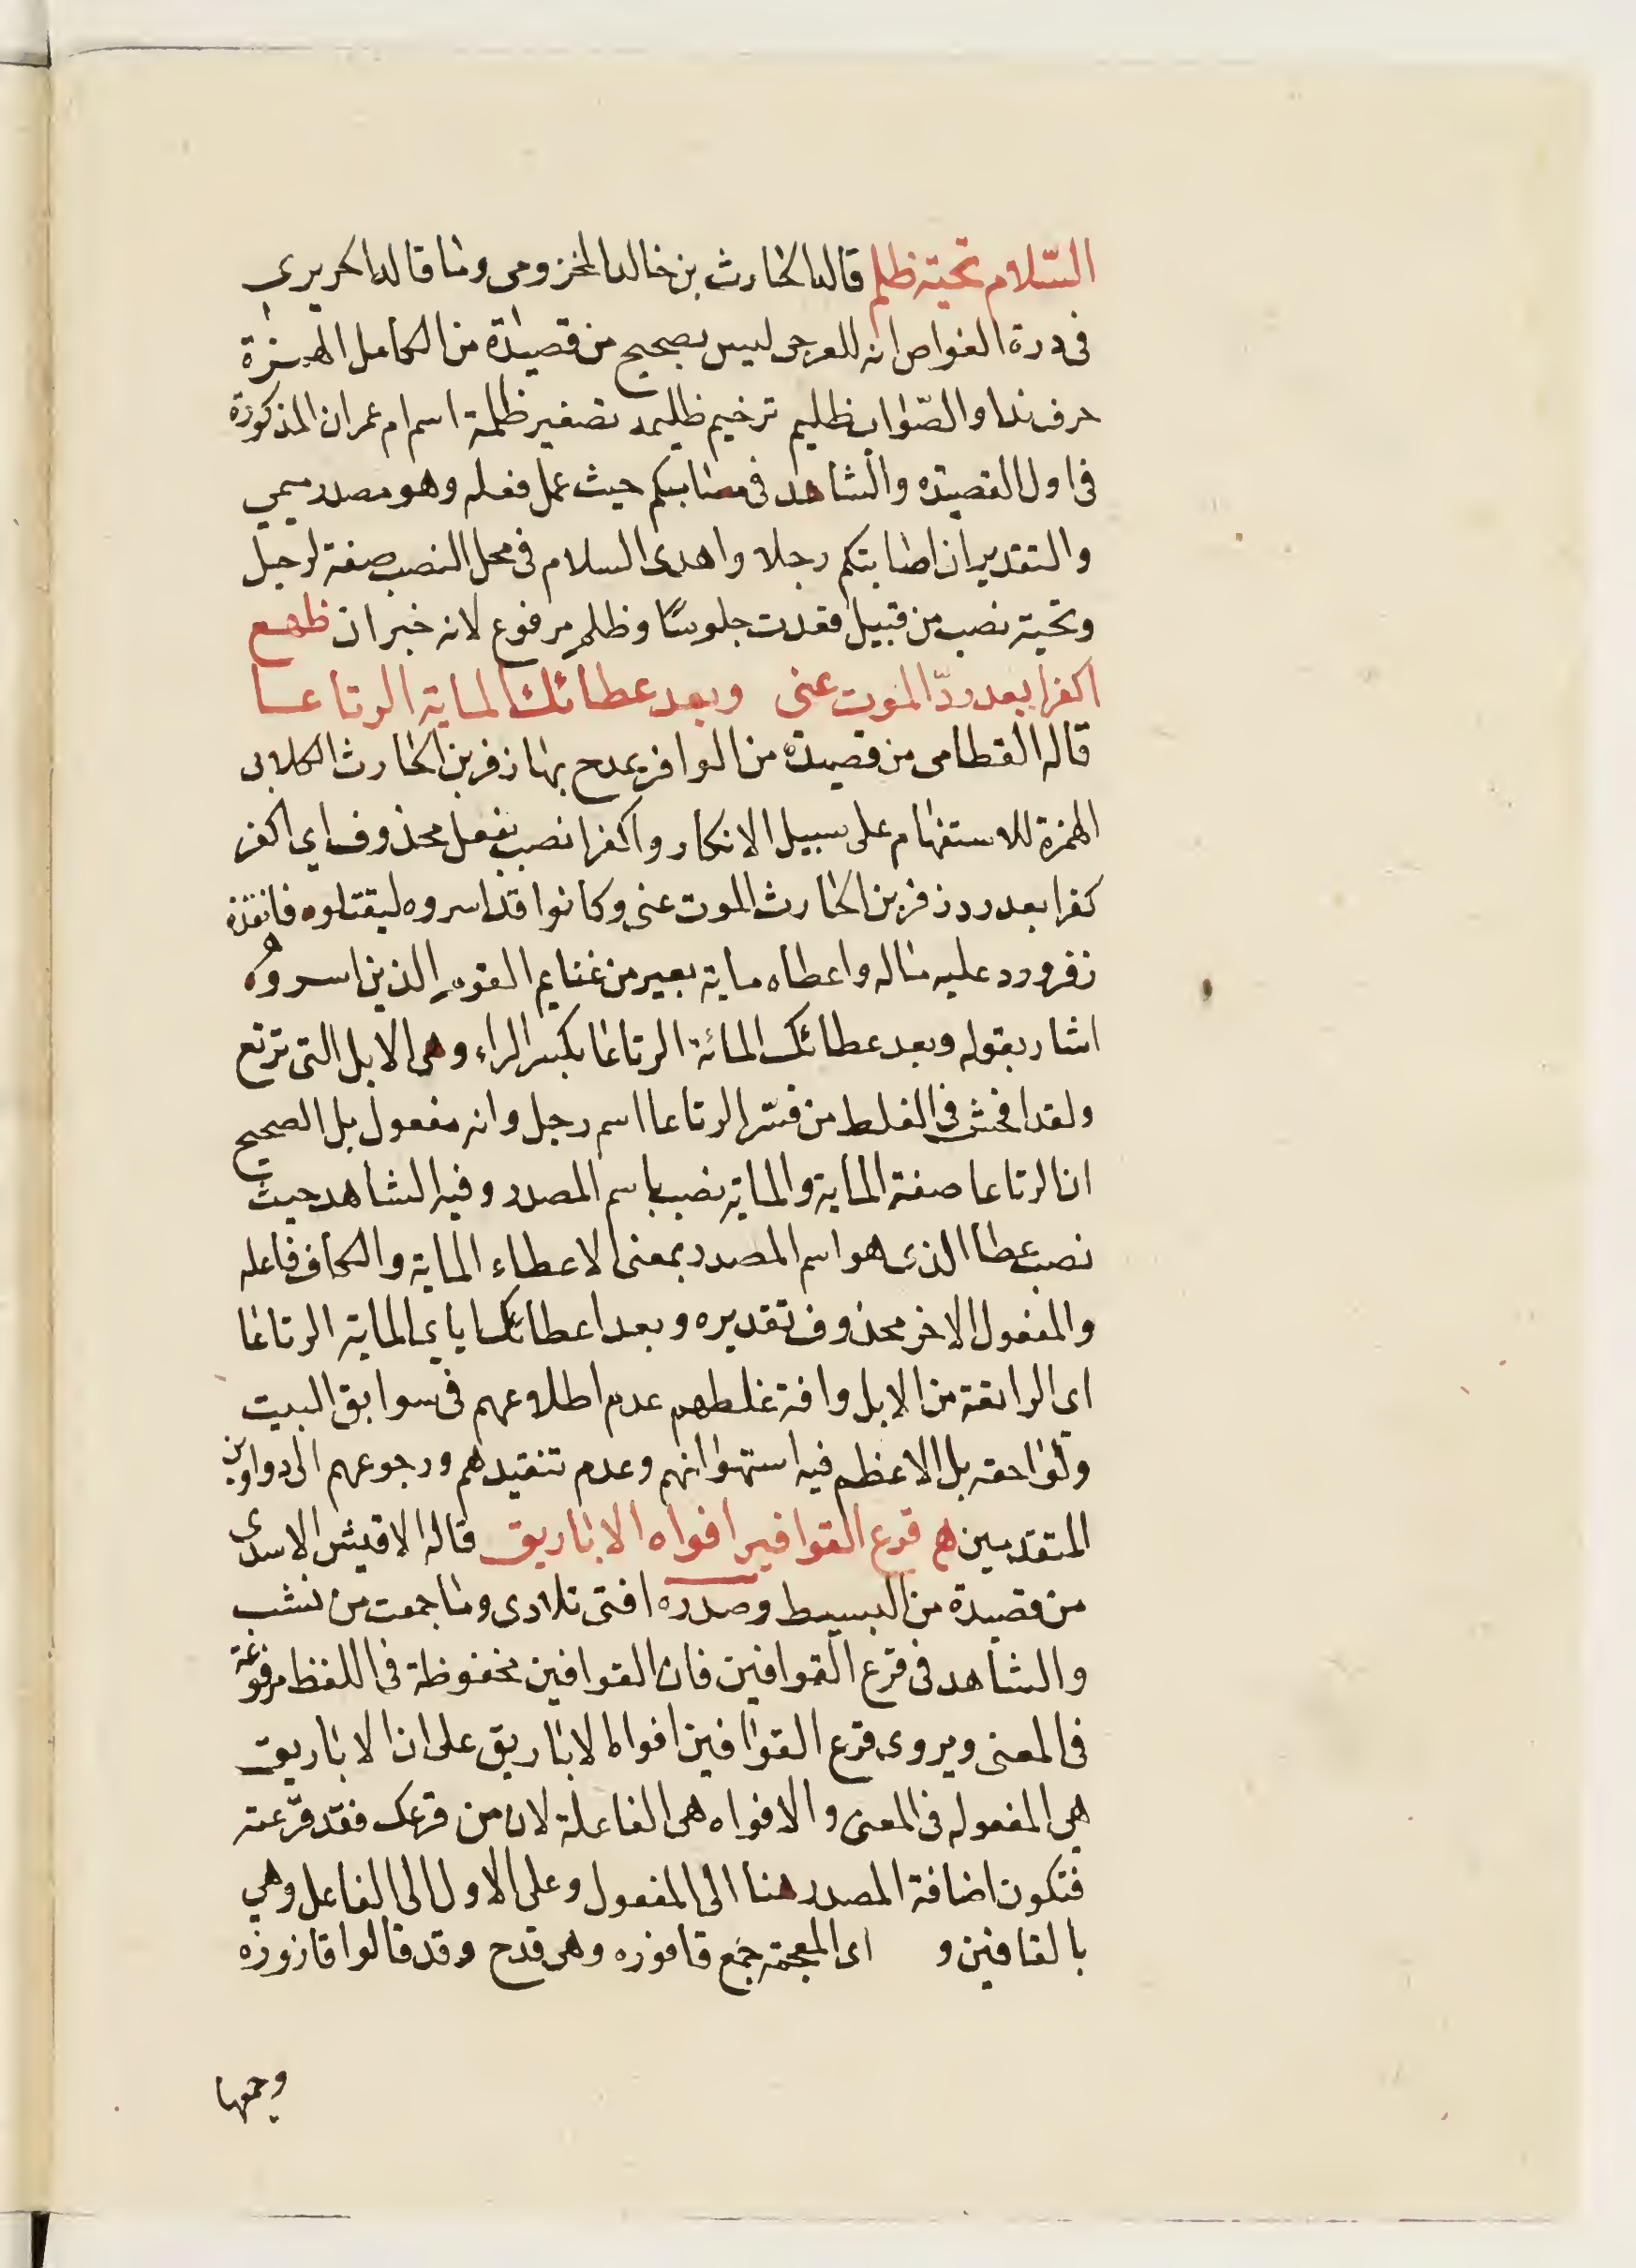 السّلام تحيّة ظلم قاله الحارث بن خالد المخزومى وما قاله الحريري
فى درة الغواص انه للعرجى ليس بصحيح من قصيدة من الكامل الهمزة
حرف ندا والصّواب ظليم ترخيم ظليمه تصغير ظلمة اسم ام عمران المذكورة
فى اول القصيدة والشاهد فى مصابكم حيث عمل فعله وهو مصدر ميمي
والتقدير ان اصابتكم رجلا واهدى السلام فى محل النصب صفة لرجل
وتحية نصب من قبيل قعدت جلوسًا وظلم مرفوع لانه خبر ان ظهع
اكفرا بعد ردّ الموت عنى وبعد عطائك الماية الرتاعا
قاله القطامى من قصيدة من الوافر يمدح بها زفر بن الحارث الكلابى
الهمزة للاستفهام على سبيل الانكار واكفرا نصب بفعل محذوف اي اكفر
كفرا بعد رد زفر بن الحارث الموت عنى وكانوا قد اسروه ليقتلوه فانقذه
زفر ورد عليه ماله واعطاه ماية بعير من غنايم القوم الذين اسروه
اشار بقوله وبعد عطائك المائة الرتاعا بكسر الراء وهى الابل التى ترتع
ولقد افحش فى الغلط من فسّر الرتاعا اسم رجل وانه مفعول بل الصحيح
ان الرتاعا صفة الماية والماية نصب باسم المصدر وفيه الشاهد حيث
نصب عطا الذى هو اسم المصدر بمعنى الاعطاء الماية والكاف فاعله
والمفعول الاخر محذوف تقديره وبعد اعطائك اياى الماية الرتاعا
اى الراتعة من الابل وافة غلطهم عدم اطلاعهم فى سوابق البيت
ولواحقه بل الاعظم فيه استهوانهم وعدم تنقيدهم ورجوعهم الى دواوين
المتقدمين هـ قرع القوافيز افواه الاباريق قاله الاقيشر الاسدى
من قصيدة من البسيط وصدره افنى تلادى وما جمعت من نشب
والشاهد فى قرع القوافيز فان القوافيز مخفوظة فى اللفظ مرفوعة
فى المعنى ويروى قرع القوافيز افواه الاباريق على ان الاباريق
هى المفعوله فى المعنى والافواه هى الفاعلة لان من قرعك فقد قرعته
فتكون اضافة المصدر هنا الى المفعول وعلى الاول الى الفاعل وهي
بالقافين و اى المعجمة جمع قاقوزه وهى قدح وقد قالوا قازوزه
وجمعها